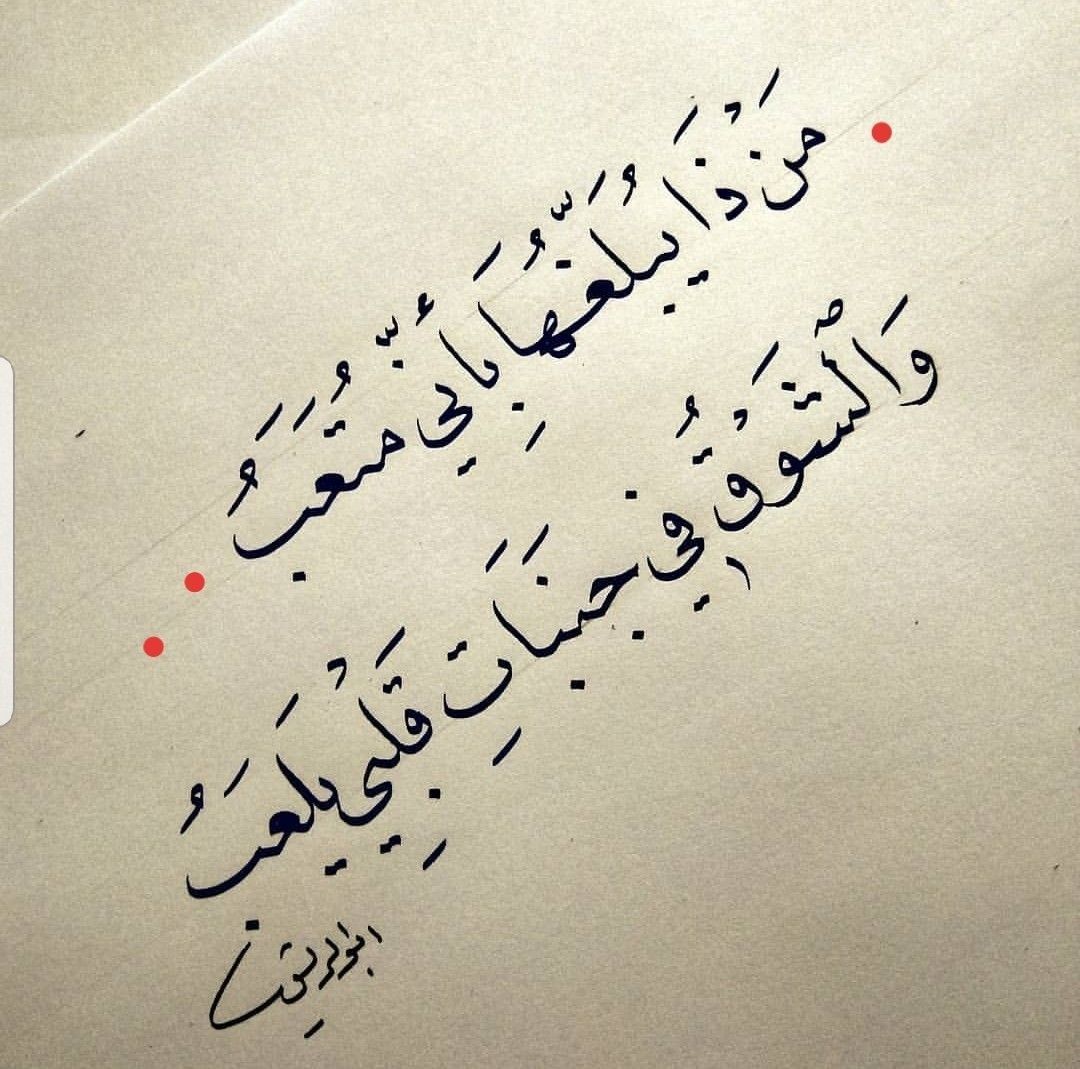 مَنْ ذَا يُبلِّغُهَا بِأَنّي مُتعَبُ
وَٱلشَّوْقُ في جنَبَاتِ قَلْبِي يَلعَبُ